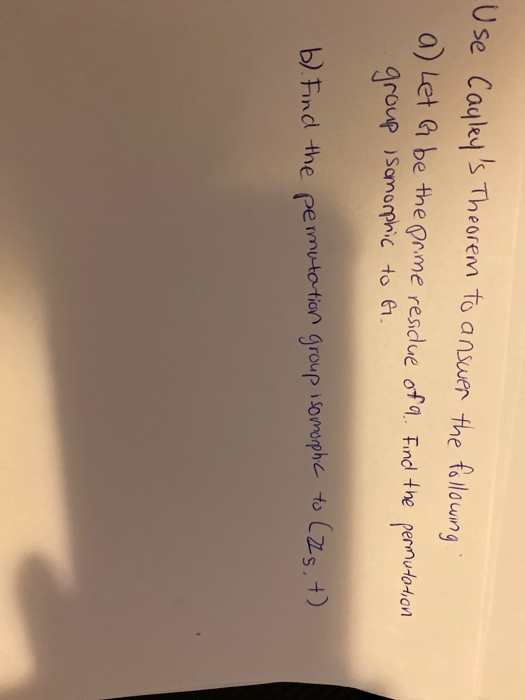 Use Cayley's Theorem to answer the following:
a) Let G be the prime residue of 9. Find the permutation
group isomorphic to G.
b). Find the permutation group isomorphic to (ℤ5, +)